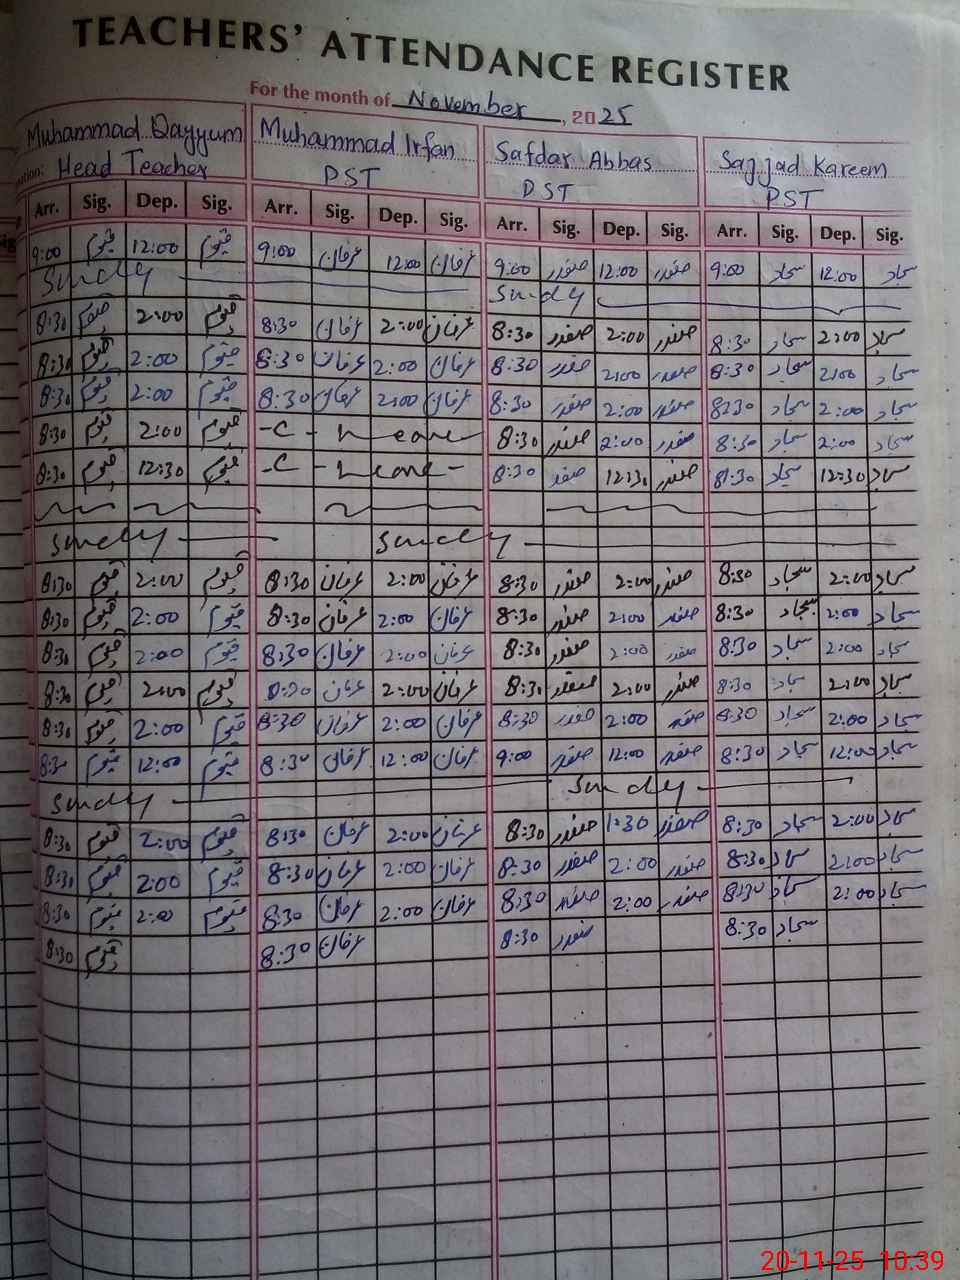 TEACHERS' ATTENDANCE REGISTER
For the month of November, 2025
Muhammad Qayyum Muhammad Irfan Safdar Abbas Sajjad Kareem
Head Teacher PST PST PST
Arr. Sig. Dep. Sig. Arr. Sig. Dep. Sig. Arr. Sig. Dep. Sig. Arr. Sig. Dep. Sig.
9:00 قیوم 12:00 قیوم 9:00 عرفان 12:00 عرفان 9:00 صفدر 12:00 صفدر 9:00 سجاد 12:00 سجاد
Sundy Sundy
8:30 قیوم 2:00 قیوم 8:30 عرفان 2:00 عرفان 8:30 صفدر 2:00 صفدر 8:30 سجاد 2:00 سجاد
8:30 قیوم 2:00 قیوم 8:30 عرفان 2:00 عرفان 8:30 صفدر 2:00 صفدر 8:30 سجاد 2:00 سجاد
8:30 قیوم 2:00 قیوم 8:30 عرفان 2:00 عرفان 8:30 صفدر 2:00 صفدر 8:30 سجاد 2:00 سجاد
8:30 قیوم 2:00 قیوم -C- Leave 8:30 صفدر 2:00 صفدر 8:30 سجاد 2:00 سجاد
8:30 قیوم 12:30 قیوم -C- Leave- 8:30 صفدر 12:30 صفدر 8:30 سجاد 12:30 سجاد
Sundy Sundy
8:30 قیوم 2:00 قیوم 8:30 عرفان 2:00 عرفان 8:30 صفدر 2:00 صفدر 8:30 سجاد 2:00 سجاد
8:30 قیوم 2:00 قیوم 8:30 عرفان 2:00 عرفان 8:30 صفدر 2:00 صفدر 8:30 سجاد 2:00 سجاد
8:30 قیوم 2:00 قیوم 8:30 عرفان 2:00 عرفان 8:30 صفدر 2:00 صفدر 8:30 سجاد 2:00 سجاد
8:30 قیوم 2:00 قیوم 8:30 عرفان 2:00 عرفان 8:30 صفدر 2:00 صفدر 8:30 سجاد 2:00 سجاد
8:30 قیوم 2:00 قیوم 8:30 عرفان 2:00 عرفان 8:30 صفدر 2:00 صفدر 8:30 سجاد 2:00 سجاد
8:30 قیوم 12:00 قیوم 8:30 عرفان 12:00 عرفان 9:00 صفدر 12:00 صفدر 8:30 سجاد 12:00 سجاد
Sundy Sundy
8:30 قیوم 2:00 قیوم 8:30 عرفان 2:00 عرفان 8:30 صفدر 1:30 صفدر 8:30 سجاد 2:00 سجاد
8:30 قیوم 2:00 قیوم 8:30 عرفان 2:00 عرفان 8:30 صفدر 2:00 صفدر 8:30 سجاد 2:00 سجاد
8:30 قیوم 2:00 قیوم 8:30 عرفان 2:00 عرفان 8:30 صفدر 2:00 صفدر 8:30 سجاد 2:00 سجاد
8:30 قیوم 8:30 عرفان 8:30 صفدر 8:30 سجاد
20-11-25 10:39